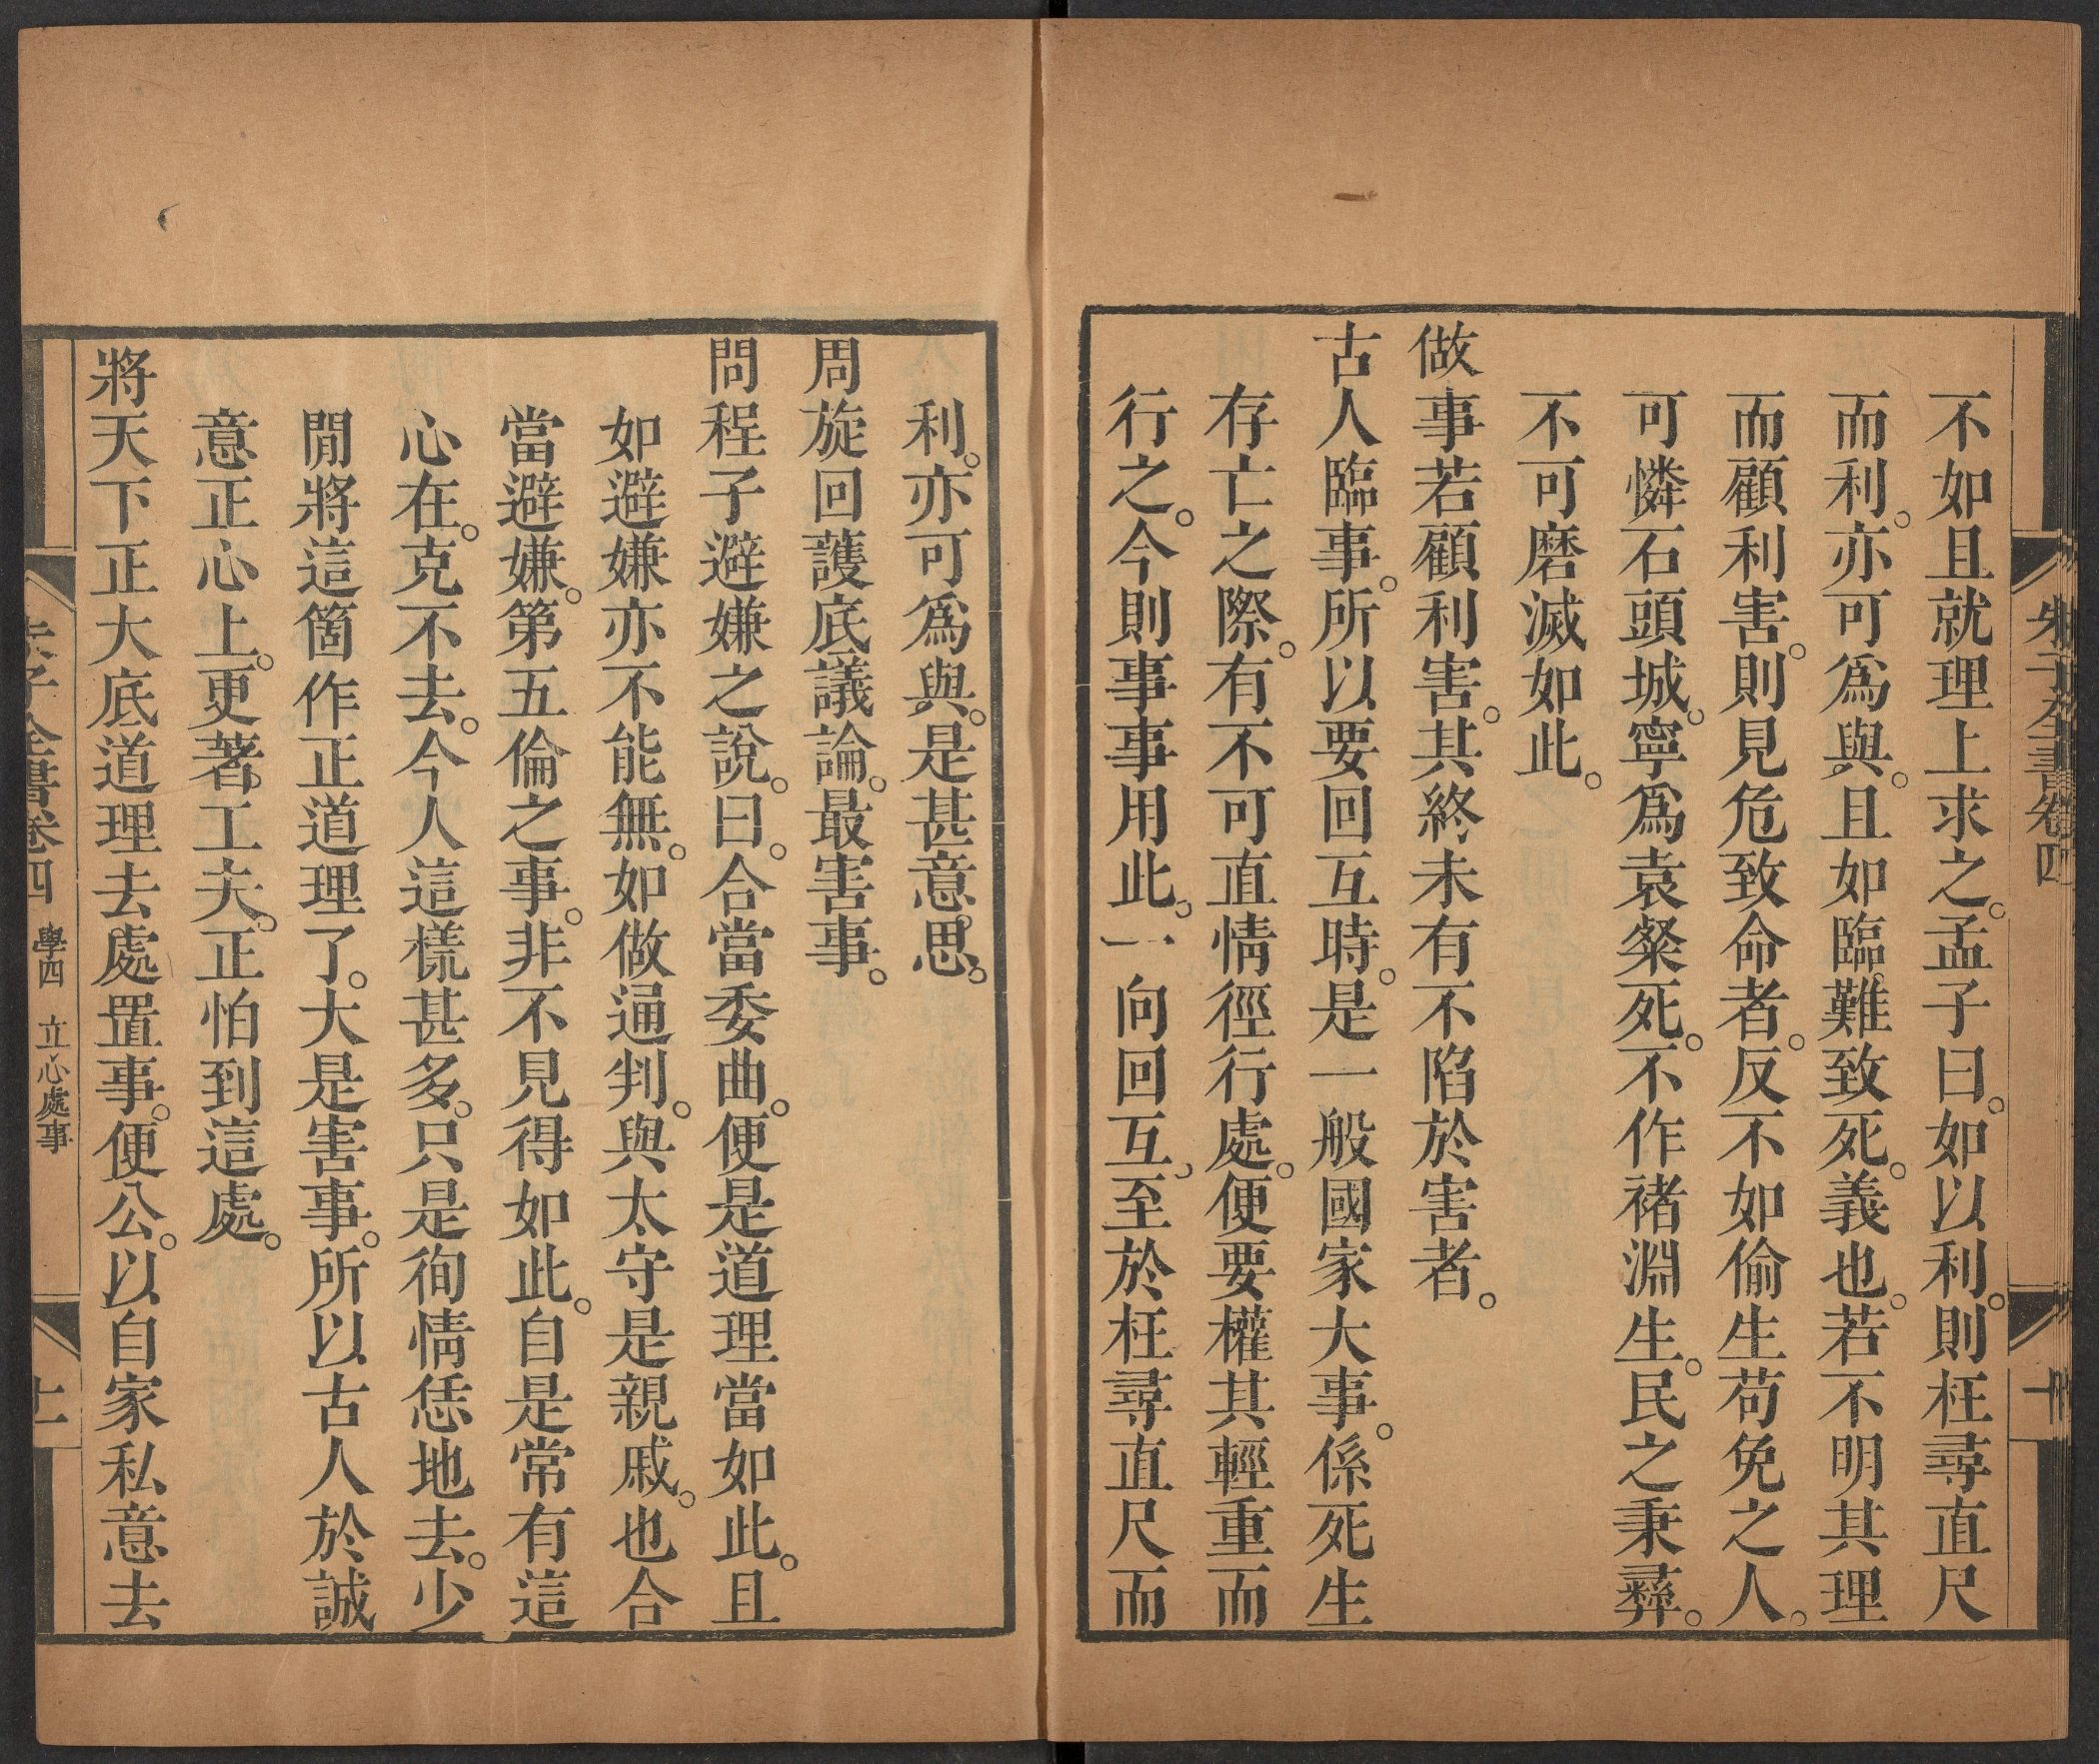 朱子全書卷四
十
不如且就理上求之。孟子曰。如以利。則枉尋直尺
而利。亦可爲與。且如臨難致死。義也。若不明其理
而顧利害。則見危致命者。反不如偷生苟免之人。
可憐石頭城。寧爲袁粲死。不作褚淵生。民之秉彝。
不可磨滅如此。
做事若顧利害。其終未有不陷於害者。
古人臨事。所以要回互時。是一般國家大事。係死生
存亡之際。有不可直情徑行處。便要權其輕重而
行之。今則事事用此。一向回互。至於枉尋直尺而
利。亦可爲與。是甚意思。
周旋回護底議論。最害事。
問程子避嫌之說。曰。合當委曲。便是道理當如此。且
如避嫌亦不能無。如做通判。與太守是親戚。也合
當避嫌。第五倫之事。非不見得如此。自是常有這
心在。克不去。今人這樣甚多。只是徇情恁地去。少
閒將這箇作正道理了。大是害事。所以古人於誠
意正心上。更著工夫。正怕到這處。
將天下正大底道理去處置事。便公。以自家私意去
朱子全書卷四 學四 立心處事
十一